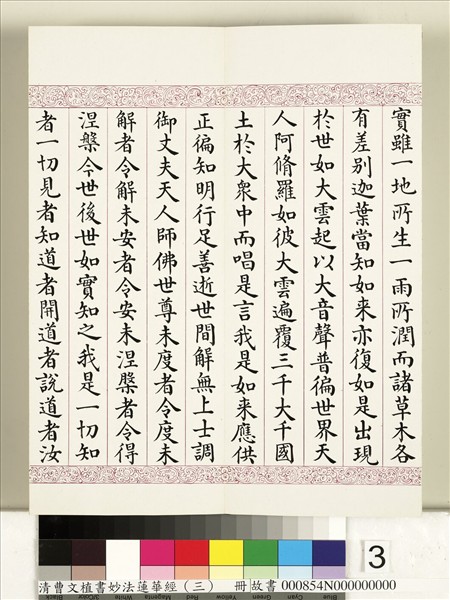 實雖一地所生一雨所潤而諸草木各
有差別迦葉當知如来亦復如是出現
於世如大雲起以大音聲普徧世界天
人阿脩羅如彼大雲遍覆三千大千國
土於大衆中而唱是言我是如来應供
正徧知明行足善逝世間解無上士調
御丈夫天人師佛世尊未度者令度未
解者令解未安者令安未涅槃者令得
涅槃今世後世如實知之我是一切知
者一切見者知道者開道者説道者汝
3
清曹文植書妙法蓮華經（三） 冊 故書 000854N000000000